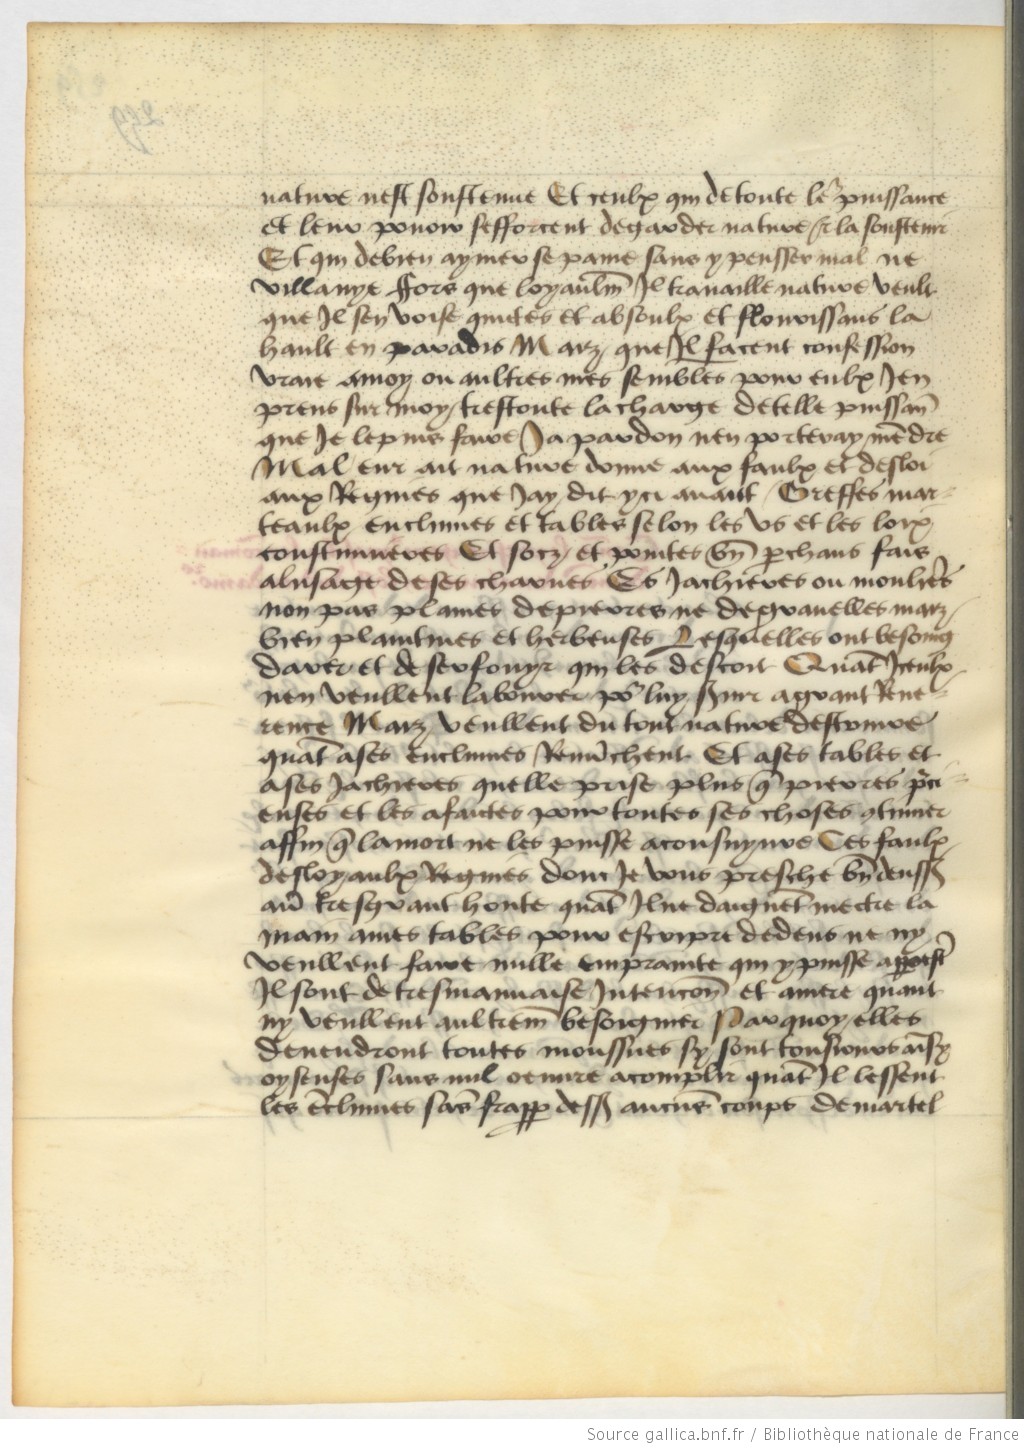 nature nest soustenue Et ceulx qui de toute le^r puissance
et leur pouoir sefforcent de garder nature & la soustenir
Et qui de bien aymer se paine sans y pensser mal ne
villanye ffors que loyaulm̄ Il travaille nature veult
que Il sen voise quictes et absoulx et flourissans la
hault en paradis Marz que Il facent confession
vraie amoy ou aultres mes sembles pour eulx Jen
prens sur moy trestoute la charge de telle puissan̄
que Je le puis faire Ja pardon nen porteray mēdre
Mal eur ait nature donne aux faulx et desloi
aux Regnies que Jay dit yci auant Greffes mar-
teaulx enclumes et tables selon les vs et les loix
coustumieres Et socz et pointes bn̄ p̱chans fais
alusage de ses charues Es Jachieres ou moulie^rs
non pas plaines de pierres ne de grauelles marz
bien plaintiues et herbeuses Lesquelles ont besoing
darer et de serfouyr qui les descoit Quāt Jceulx
nen veullent labourer po^r luy Seur agrant Reue-
rence Marz veullent du tout nature destruire
quāt ases enclumes Remūchent Et ases tables et
ases Jachieres quelle prise plus q̄ pierres p̄ci-
euses et les afaictes pour toutes ses choses ꝯtinuer
affin q̄ la mort ne les puisse aconsuyure Ces faulx
desloyaulx Regnies dont Je vous presche bn̄ deuss̄
au^r tresgrant honte quāt Il ne daignēt mectre la
main ames tables pour escripre dedens ne ny
veullent faire nulle emprainte qui y puisse
Il sont de tresmauuaise Intencōn et amere quant
ny veullent aultrem̄ besoigner Par quoy elles
deuendront toutes moussues sy sont tousiours aīsy
oyseuses sans nul oeuure acomplir quāt Il lessent
les ēclumes sās frapp̱ dess̄ aucūs coups de martel
Source gallica.bnf.fr / Bibliothèque nationale de France